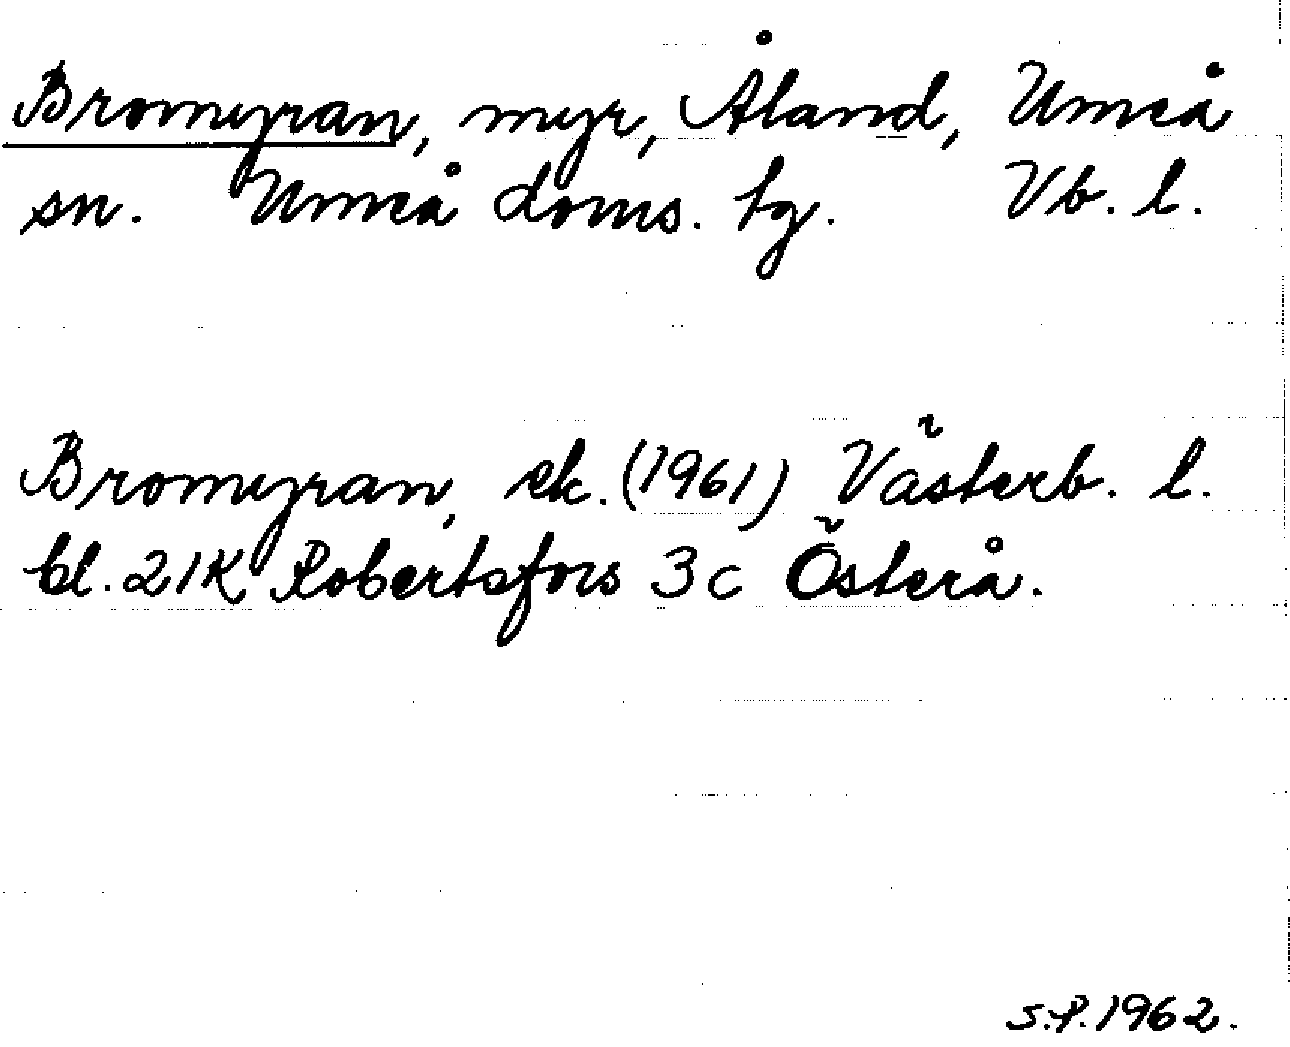 Bromyran, myr, Åland, Umeå
sn. Umeå doms. tg. Vb. l.
Bromyran, ek. (1961) Västerb. l.
bl. 21K Robertsfors 3c Österå.
S.P. 1962.